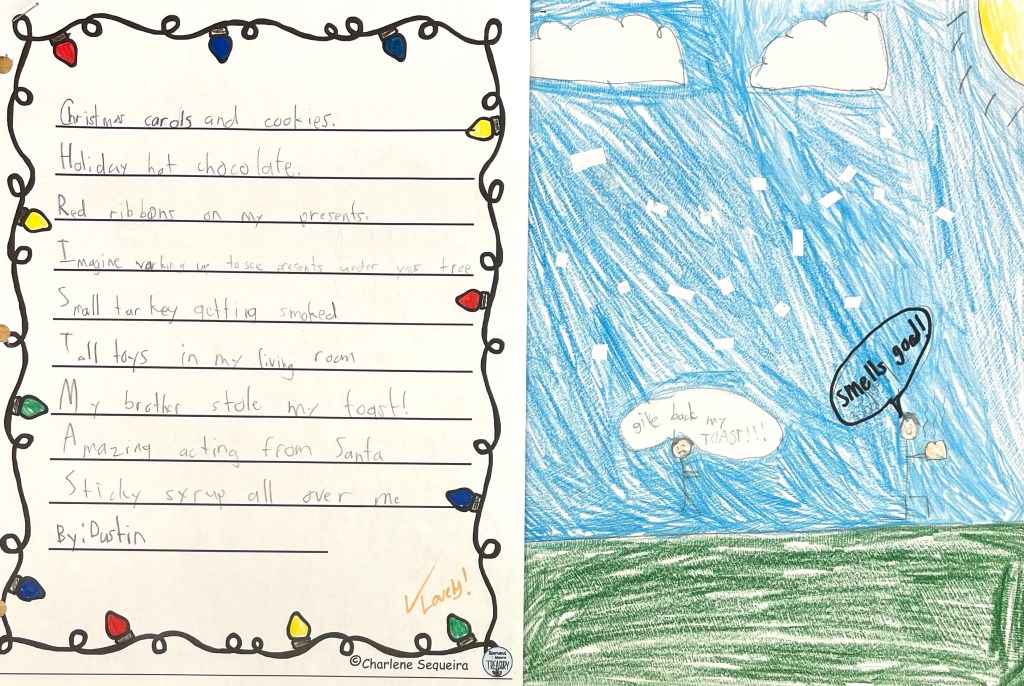 Christmas carols and cookies.
Holiday hot chocolate.
Red ribbons on my presents.
Imagine waking up to see presents under your tree
Small turkey getting smoked
Tall toys in my living room
My brother stole my toast!
Amazing acting from Santa
Sticky syrup all over me
By: Dustin
Lovely!
©Charlene Sequeira
TREASURY
smells good!
give back my
TOAST!!!